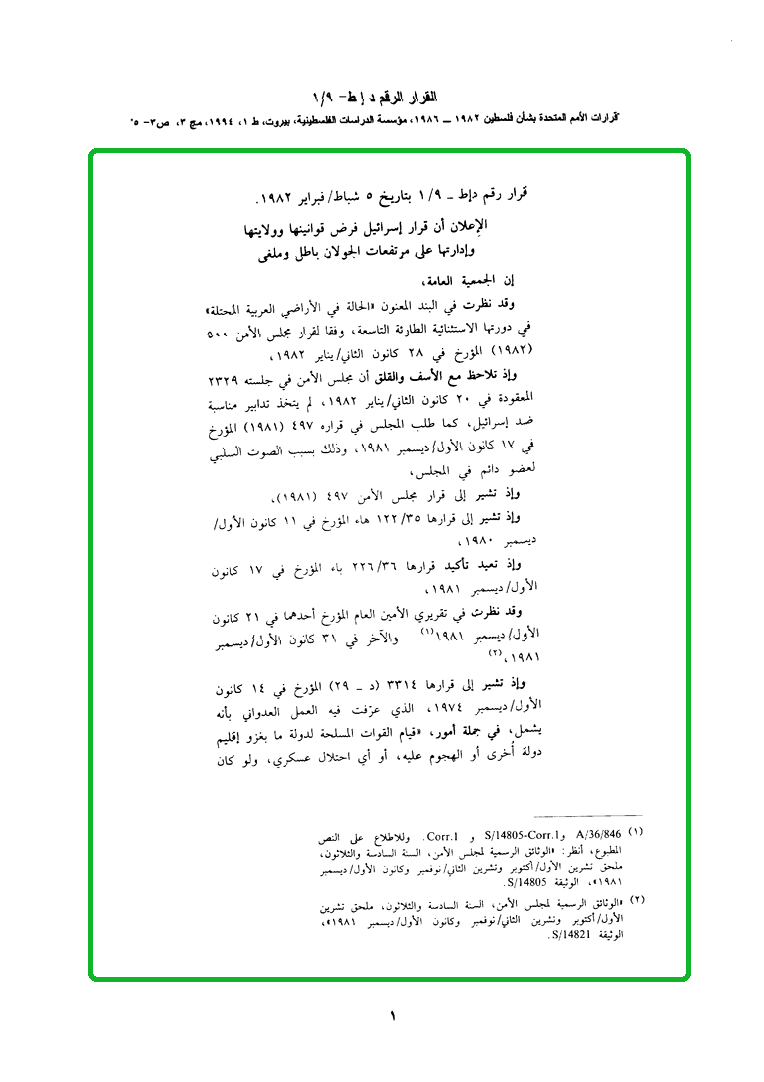 القرار الرقم د إ ط- ١/٩
"قرارات الأمم المتحدة بشأن فلسطين ١٩٨٢ ــ ١٩٨٦، مؤسسة الدراسات الفلسطينية، بيروت، ط ١، ١٩٩٤، مج ٣، ص٣- ٥"
قرار رقم دإط ــ ١/٩ بتاريخ ٥ شباط/فبراير ١٩٨٢.
الإعلان أن قرار إسرائيل فرض قوانينها وولايتها
وإدارتها على مرتفعات الجولان باطل وملغى
إن الجمعية العامة،
وقد نظرت في البند المعنون «الحالة في الأراضي العربية المحتلة»
في دورتها الاستثنائية الطارئة التاسعة، وفقا لقرار مجلس الأمن ٥٠٠
(١٩٨٢) المؤرخ في ٢٨ كانون الثاني/يناير ١٩٨٢،
وإذ تلاحظ مع الأسف والقلق أن مجلس الأمن في جلسته ٢٣٢٩
المعقودة في ٢٠ كانون الثاني/يناير ١٩٨٢، لم يتخذ تدابير مناسبة
ضد إسرائيل، كما طلب المجلس في قراره ٤٩٧ (١٩٨١) المؤرخ
في ١٧ كانون الأول/ديسمبر ١٩٨١، وذلك بسبب الصوت السلبي
لعضو دائم في المجلس،
وإذ تشير إلى قرار مجلس الأمن ٤٩٧ (١٩٨١)،
وإذ تشير إلى قرارها ١٢٢/٣٥ هاء المؤرخ في ١١ كانون الأول/
ديسمبر ١٩٨٠،
وإذ تعيد تأكيد قرارها ٢٢٦/٣٦ باء المؤرخ في ١٧ كانون
الأول/ديسمبر ١٩٨١،
وقد نظرت في تقريري الأمين العام المؤرخ أحدهما في ٢١ كانون
الأول/ديسمبر ١٩٨١(١) والآخر في ٣١ كانون الأول/ديسمبر
١٩٨١،(٢)
وإذ تشير إلى قرارها ٣٣١٤ (د ــ ٢٩) المؤرخ في ١٤ كانون
الأول/ديسمبر ١٩٧٤، الذي عرّفت فيه العمل العدواني بأنه
يشمل، في جملة أمور، «قيام القوات المسلحة لدولة ما بغزو إقليم
دولة أخرى أو الهجوم عليه، أو أي احتلال عسكري، ولو كان
(١) A/36/846 وS/14805-Corr.1 و Corr.1. وللاطلاع على النص
المطبوع، أنظر: «الوثائق الرسمية لمجلس الأمن، السنة السادسة والثلاثون،
ملحق تشرين الأول/أكتوبر وتشرين الثاني/نوفمبر وكانون الأول/ديسمبر
١٩٨١»، الوثيقة S/14805.
(٢) «الوثائق الرسمية لمجلس الأمن، السنة السادسة والثلاثون، ملحق تشرين
الأول/أكتوبر وتشرين الثاني/نوفمبر وكانون الأول/ديسمبر ١٩٨١»،
الوثيقة S/14821.
١